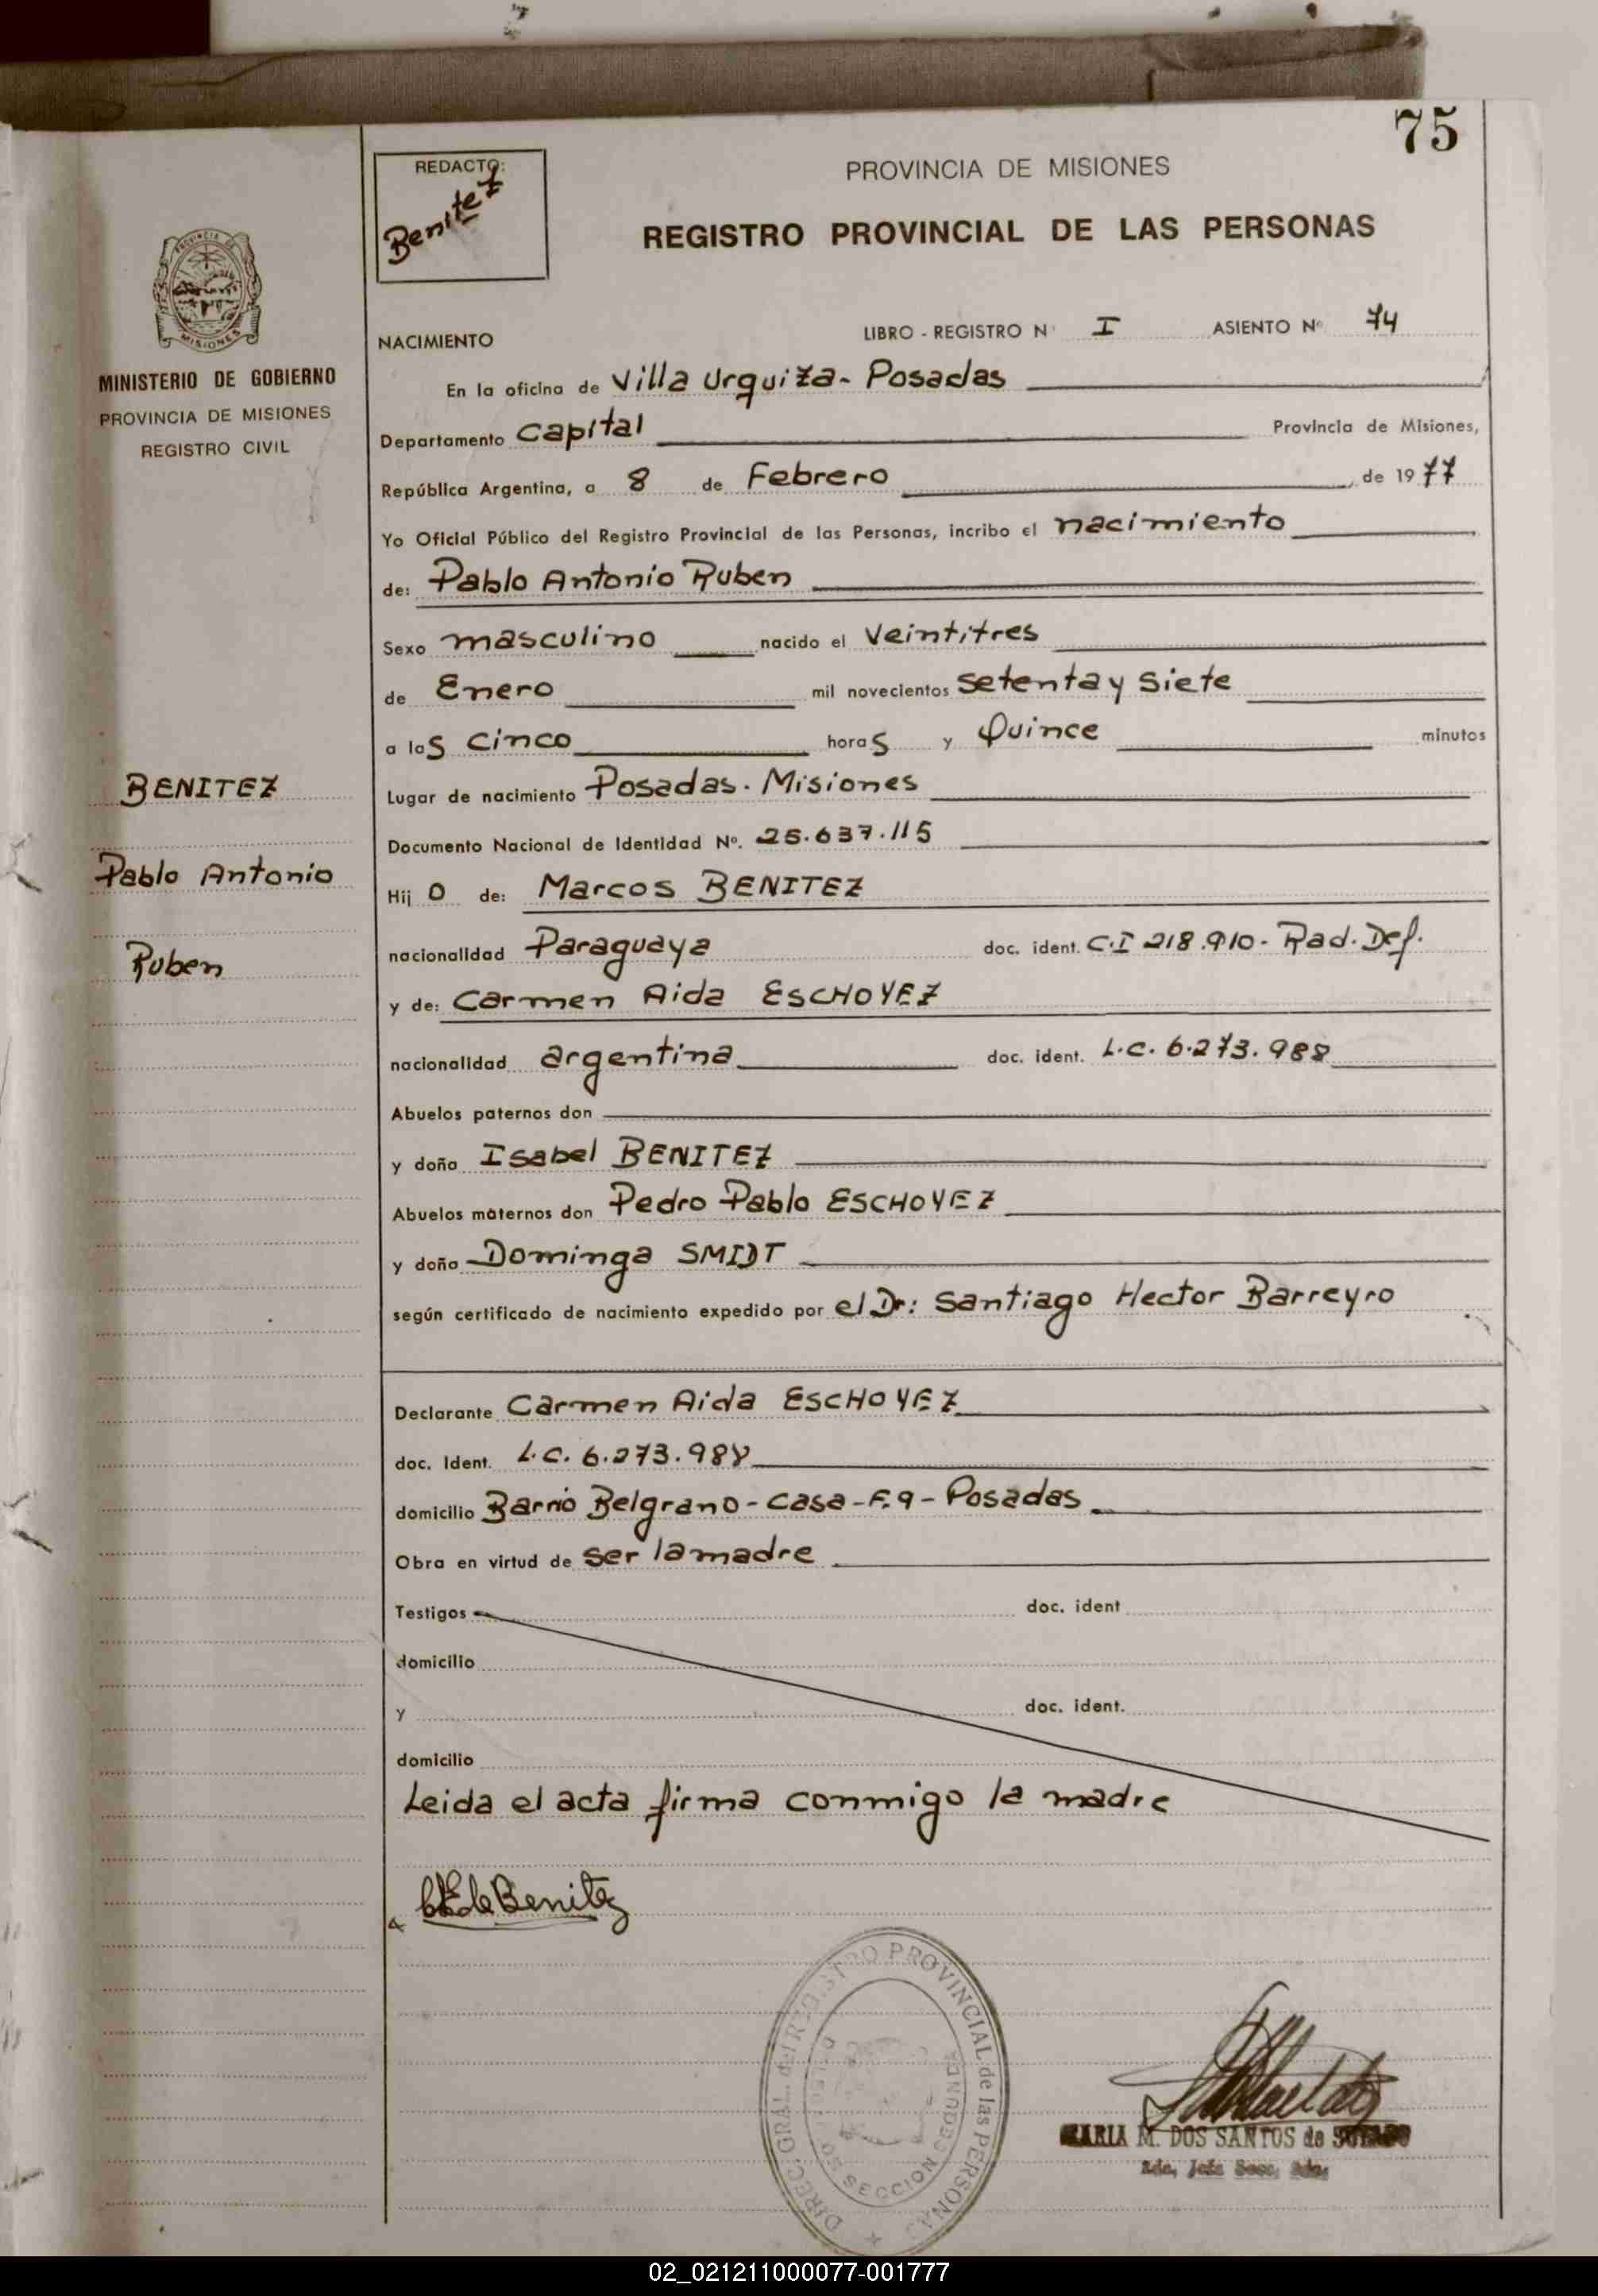 75
REDACTO:
Benitez
PROVINCIA DE MISIONES
REGISTRO PROVINCIAL DE LAS PERSONAS
PROVINCIA DE
MISIONES
MINISTERIO DE GOBIERNO
PROVINCIA DE MISIONES
REGISTRO CIVIL
NACIMIENTO
LIBRO - REGISTRO Nº I ASIENTO Nº 74
En la oficina de Villa Urquiza - Posadas
Departamento Capital Provincia de Misiones,
República Argentina, a 8 de Febrero, de 1977
Yo Oficial Público del Registro Provincial de las Personas, incribo el nacimiento
de: Pablo Antonio Ruben
Sexo masculino nacido el Veintitres
de Enero mil novecientos setenta y siete
a las cinco horas y Quince minutos
BENITEZ
Pablo Antonio
Ruben
Lugar de nacimiento Posadas. Misiones
Documento Nacional de Identidad Nº. 25.637.115
Hij o de: Marcos BENITEZ
nacionalidad Paraguaya doc. ident. C.I 218.910- Rad. Def.
y de: Carmen Aida ESCHOYEZ
nacionalidad argentina doc. ident. L.C. 6.273.988
Abuelos paternos don
y doña Isabel BENITEZ
Abuelos maternos don Pedro Pablo ESCHOYEZ
y doña Dominga SMIDT
según certificado de nacimiento expedido por el Dr: Santiago Hector Barreyro
Declarante Carmen Aida ESCHOYEZ
doc. Ident. L.C. 6.273.988
domicilio Barrio Belgrano - Casa - F.9 - Posadas
Obra en virtud de ser la madre
Testigos doc. ident
domicilio
y doc. ident.
domicilio
Leida el acta firma conmigo la madre
de Benitez
DIREC. GRAL. del REGISTRO PROVINCIAL de las PERSONAS
SECCION SEGUNDA
MARIA M. DOS SANTOS de
02_021211000077-001777